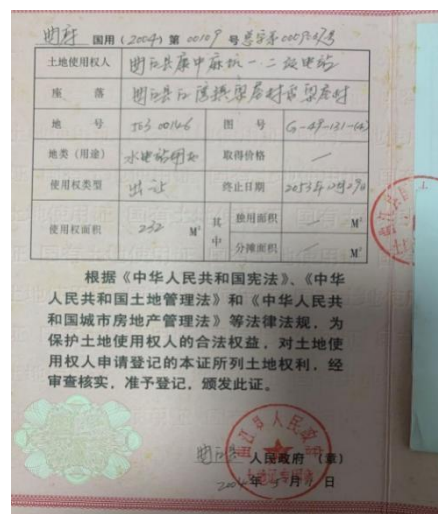 曲府 国用(2004)第 00109 号
土地使用权人 曲江县 一、二级电站
座 落 曲江县
地 号 图 号 G-49-131-(4)
地类(用途) 水电站用地 取得价格 —
使用权类型 出让 终止日期 2053年
使用权面积 232 M² 其中 独用面积 — M²
分摊面积 — M²
根据《中华人民共和国宪法》、《中华
人民共和国土地管理法》和《中华人民共
和国城市房地产管理法》等法律法规,为
保护土地使用权人的合法权益,对土地使
用权人申请登记的本证所列土地权利,经
审查核实,准予登记,颁发此证。
曲江县人民政府
曲江县 人民政府(章)
2004年 月 日